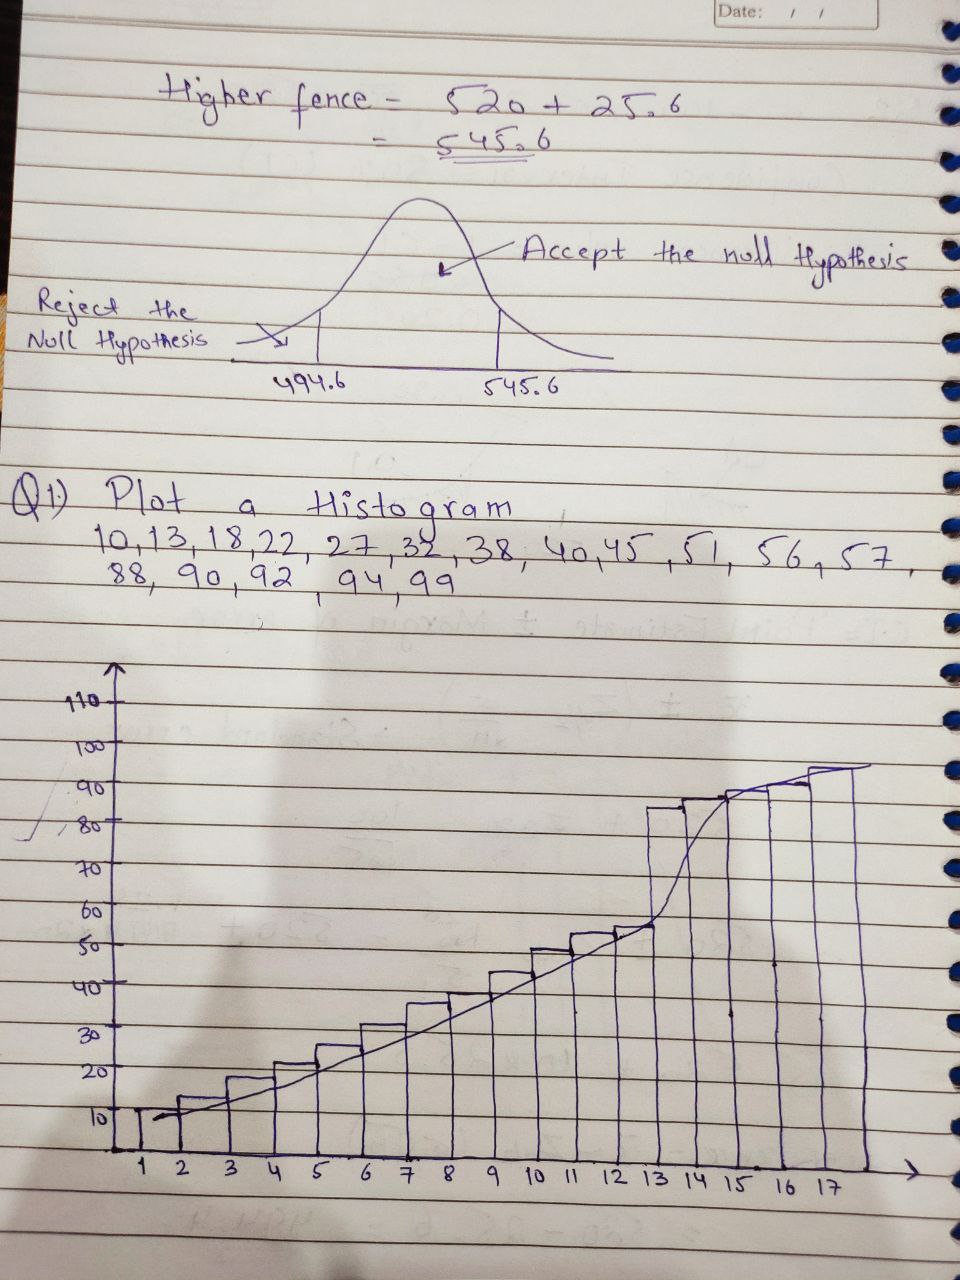 Date: / /
Higher fence = 520 + 25.6
= 545.6
Accept the null Hypothesis
Reject the
Null Hypothesis
494.6 545.6
Q1) Plot a Histogram
10, 13, 18, 22, 27, 32, 38, 40, 45, 51, 56, 57,
88, 90, 92, 94, 99
110
100
90
80
70
60
50
40
30
20
10
1 2 3 4 5 6 7 8 9 10 11 12 13 14 15 16 17